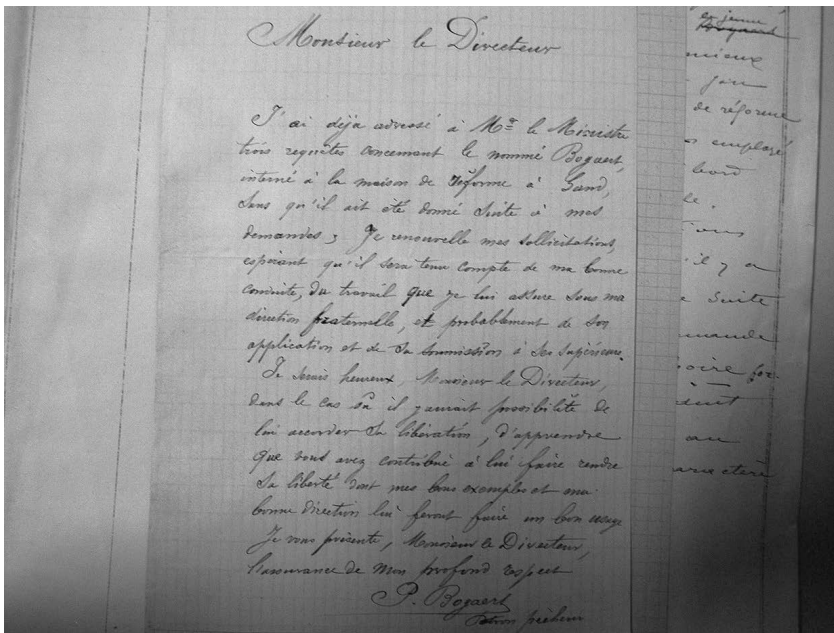 Monsieur le Directeur
J'ai déja adressé à Mr le Ministre
trois requêtes concernant le nommé Bogaert,
interné à la maison de réforme à Gand,
sans qu'il ait été donné suite à mes
demandes; Je renouvelle mes sollicitations,
espérant qu'il sera tenu compte de ma bonne
conduite, du travail que je lui assure sous ma
direction fraternelle, et probablement de son
application et de sa soumission à ses supérieurs.
Je serais heureux, Monsieur le Directeur,
dans le cas où il y aurait possibilité de
lui accorder sa libération, d'apprendre
que vous avez contribué à lui faire rendre
sa liberté dont mes bons exemples et ma
bonne direction lui feront faire un bon usage
Je vous présente, Monsieur le Directeur,
l'assurance de mon profond respect
P. Bogaert
Patron pêcheur
de réforme
employé
bord
il y a
suite
au